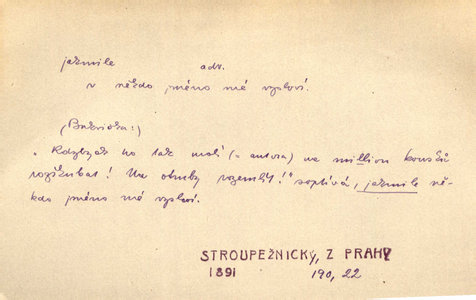 jakmile adv.
v někdo jméno mé vysloví.
(Bukvička:)
"Kdybych ho tak mohl (= autora) na million kousků
rozškubat! Na atomy rozemlít!" soptívá, jakmile ně-
kdo jméno mé vysloví.
STROUPEŽNICKÝ, Z PRAHY
1891 190, 22